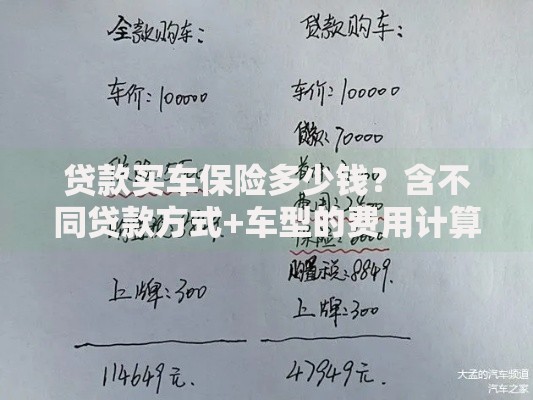 全款购车:
车价:100000
上牌:300
114649元.
贷款购车:
车价:100000
贷款:70000
保险:6000
购置税:8849.
上牌:300
47949元.
贷款买车保险多少钱？含不
同贷款方式+车型的费用计算
大孟的汽车频道
汽车之家